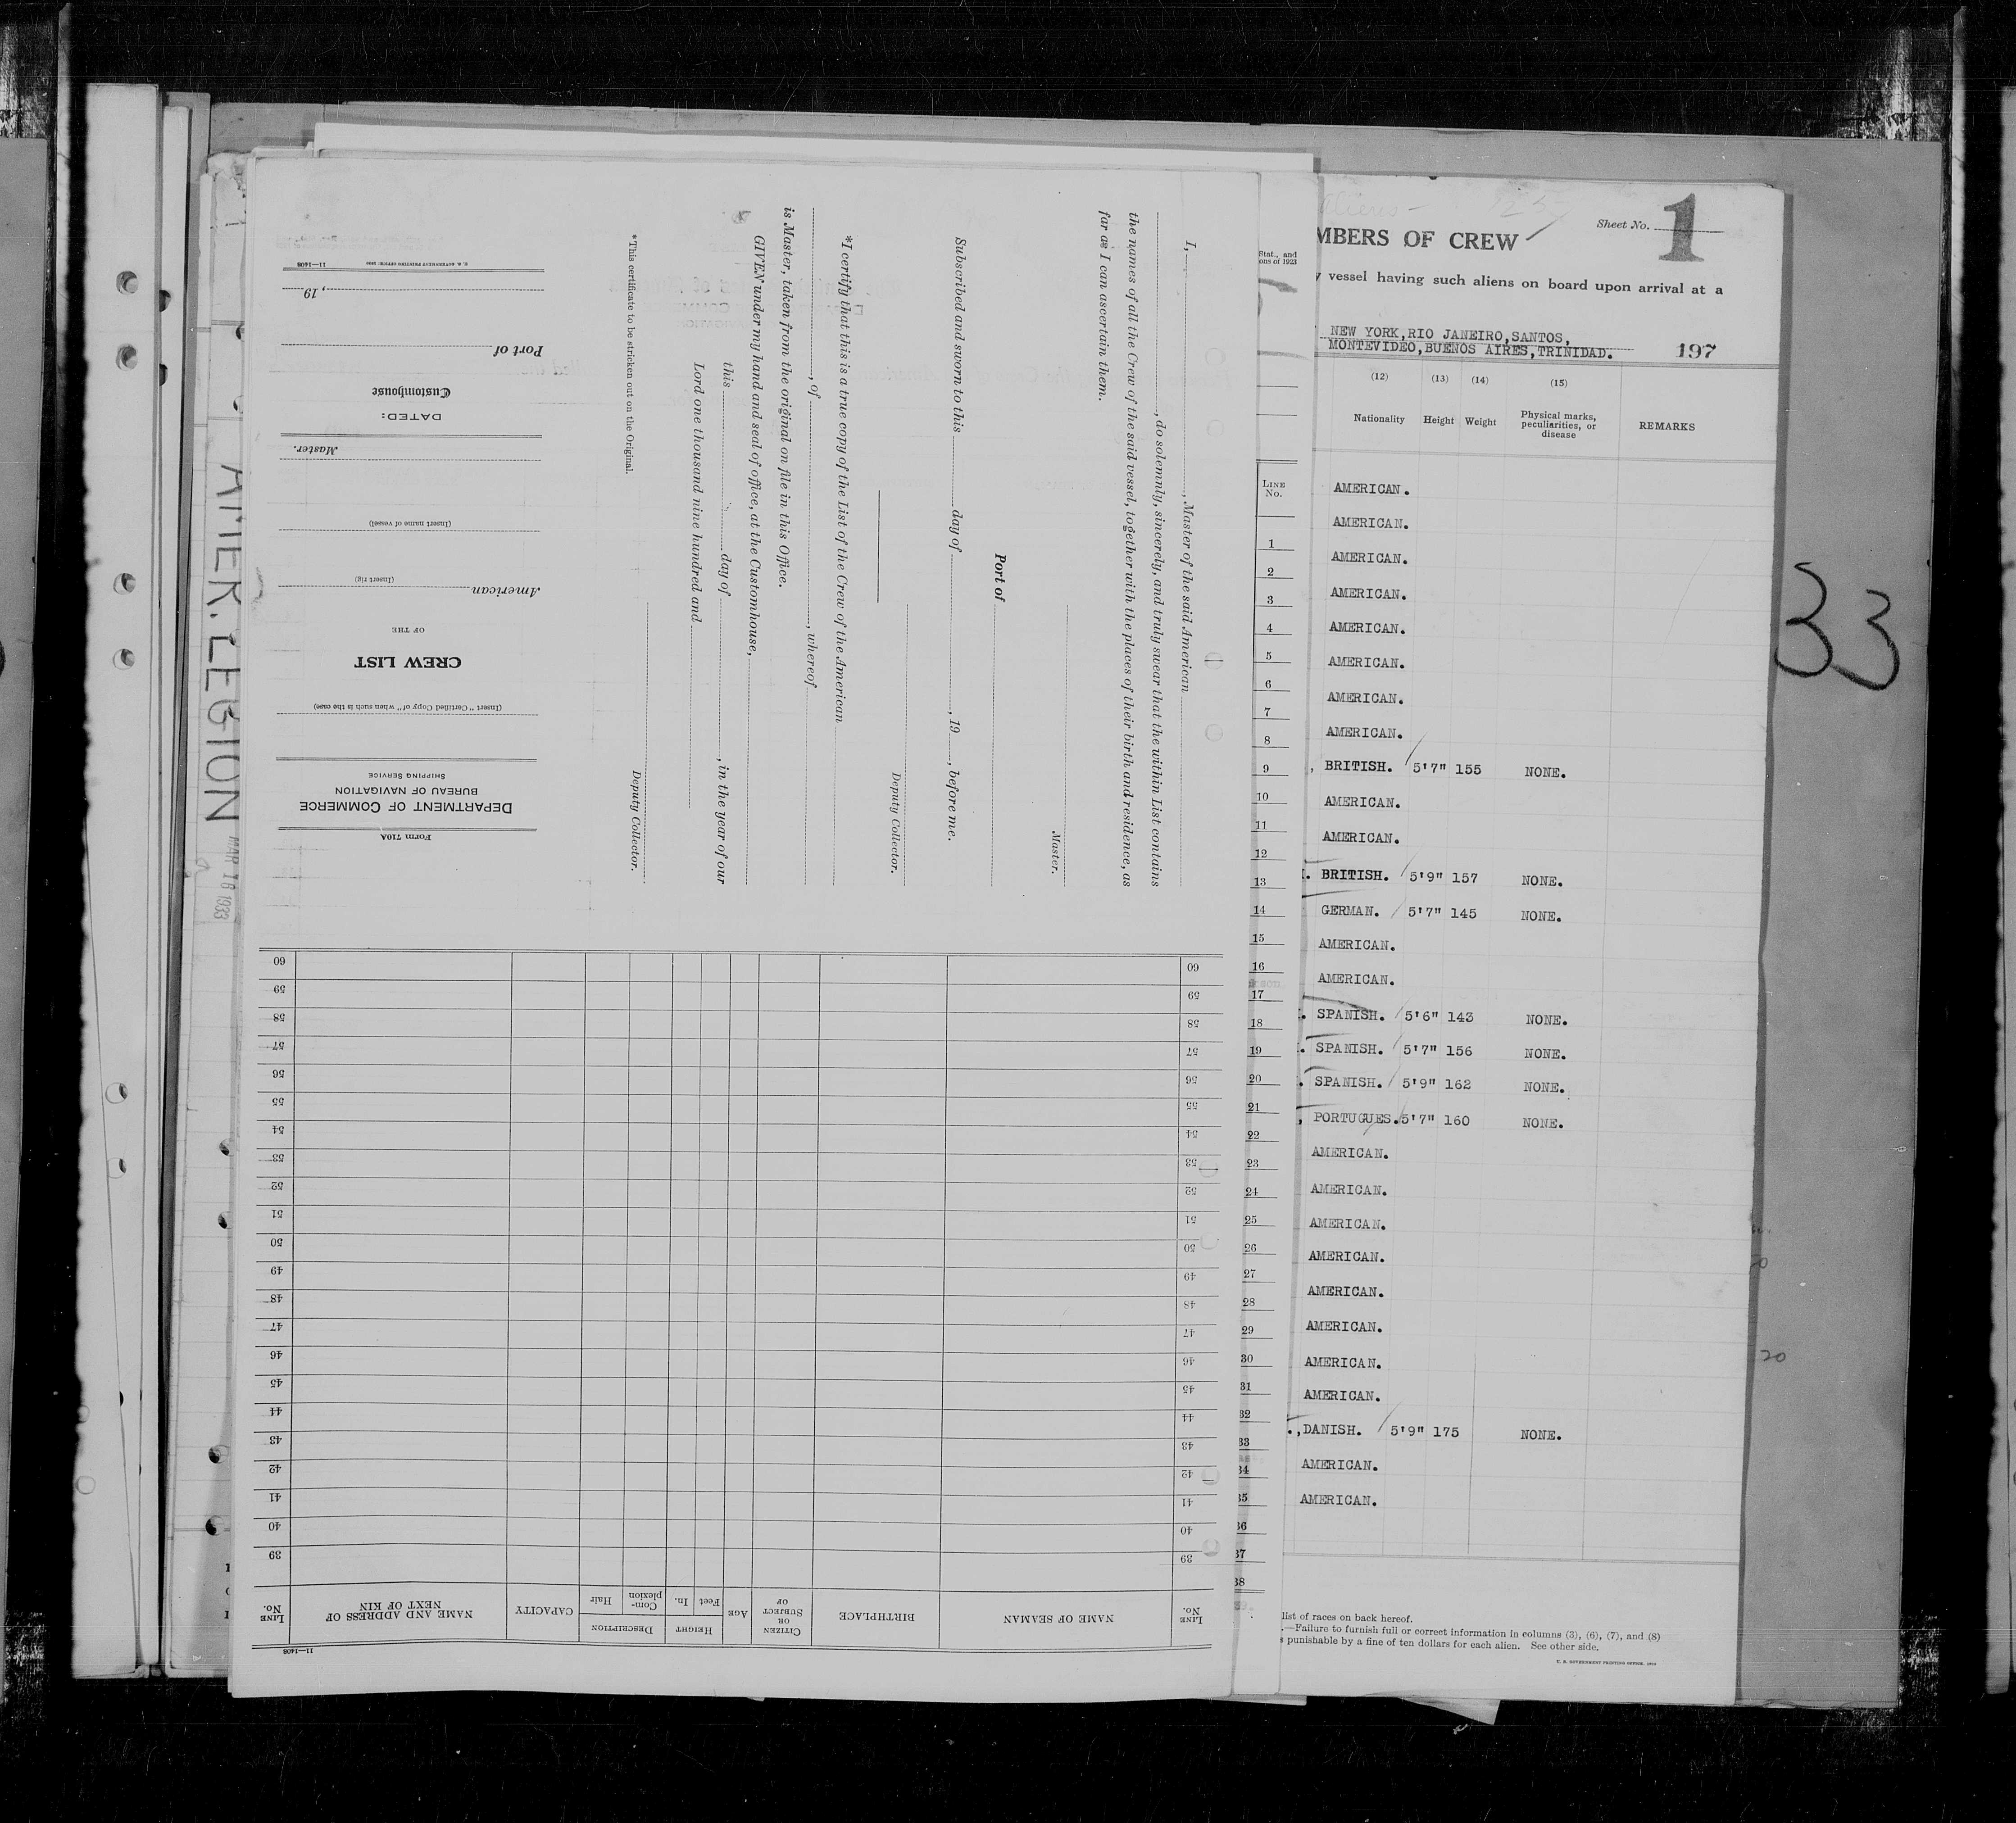 AMER. LEGION MAR 16 1933
Form 710A
DEPARTMENT OF COMMERCE
BUREAU OF NAVIGATION
SHIPPING SERVICE
(Insert "Certified Copy of" when such is the case)
CREW LIST
OF THE
American
(Insert rig)
(Insert name of vessel)
Master.
DATED:
Customhouse
Port of
, 19
11—1408 U. S. GOVERNMENT PRINTING OFFICE:
I, , Master of the said American
, do solemnly, sincerely, and truly swear that the within List contains
the names of all the Crew of the said vessel, together with the places of their birth and residence, as
far as I can ascertain them.
Master.
Port of
Subscribed and sworn to this day of , 19 , before me.
Deputy Collector.
*I certify that this is a true copy of the List of the Crew of the American
, of , whereof
is Master, taken from the original on file in this Office.
GIVEN under my hand and seal of office, at the Customhouse,
this day of , in the year of our
Lord one thousand nine hundred and
Deputy Collector.
*This certificate to be stricken out on the Original.
11—1408
LINE No. NAME OF SEAMAN BIRTHPLACE CITIZEN OR SUBJECT OF AGE HEIGHT Feet In. DESCRIPTION Com-plexion Hair CAPACITY NAME AND ADDRESS OF NEXT OF KIN LINE No.
39 39
40 40
41 41
42 42
43 43
44 44
45 45
46 46
47 47
48 48
49 49
50 50
51 51
52 52
53 53
54 54
55 55
56 56
57 57
58 58
59 59
60 60
Stat., and
ons of 1923
LINE
No.
1
2
3
4
5
6
7
8
9
10
11
12
13
14
15
16
17
18
19
20
21
22
23
24
25
26
27
28
29
30
31
32
33
34
35
36
37
38
Sheet No. 1
MBERS OF CREW
vessel having such aliens on board upon arrival at a
NEW YORK,RIO JANEIRO,SANTOS,
MONTEVIDEO,BUENOS AIRES,TRINIDAD. 197
(12) (13) (14) (15)
Nationality Height Weight Physical marks, peculiarities, or disease REMARKS
AMERICAN.
AMERICAN.
AMERICAN.
AMERICAN.
AMERICAN.
AMERICAN.
AMERICAN.
AMERICAN.
BRITISH. 5'7" 155 NONE.
AMERICAN.
AMERICAN.
BRITISH. 5'9" 157 NONE.
GERMAN. 5'7" 145 NONE.
AMERICAN.
AMERICAN.
SPANISH. 5'6" 143 NONE.
SPANISH. 5'7" 156 NONE.
SPANISH. 5'9" 162 NONE.
PORTUGUES. 5'7" 160 NONE.
AMERICAN.
AMERICAN.
AMERICAN.
AMERICAN.
AMERICAN.
AMERICAN.
AMERICAN.
AMERICAN.
.,DANISH. 5'9" 175 NONE.
AMERICAN.
AMERICAN.
list of races on back hereof.
.—Failure to furnish full or correct information in columns (3), (6), (7), and (8)
s punishable by a fine of ten dollars for each alien. See other side.
U. S. GOVERNMENT PRINTING OFFICE.
33
20